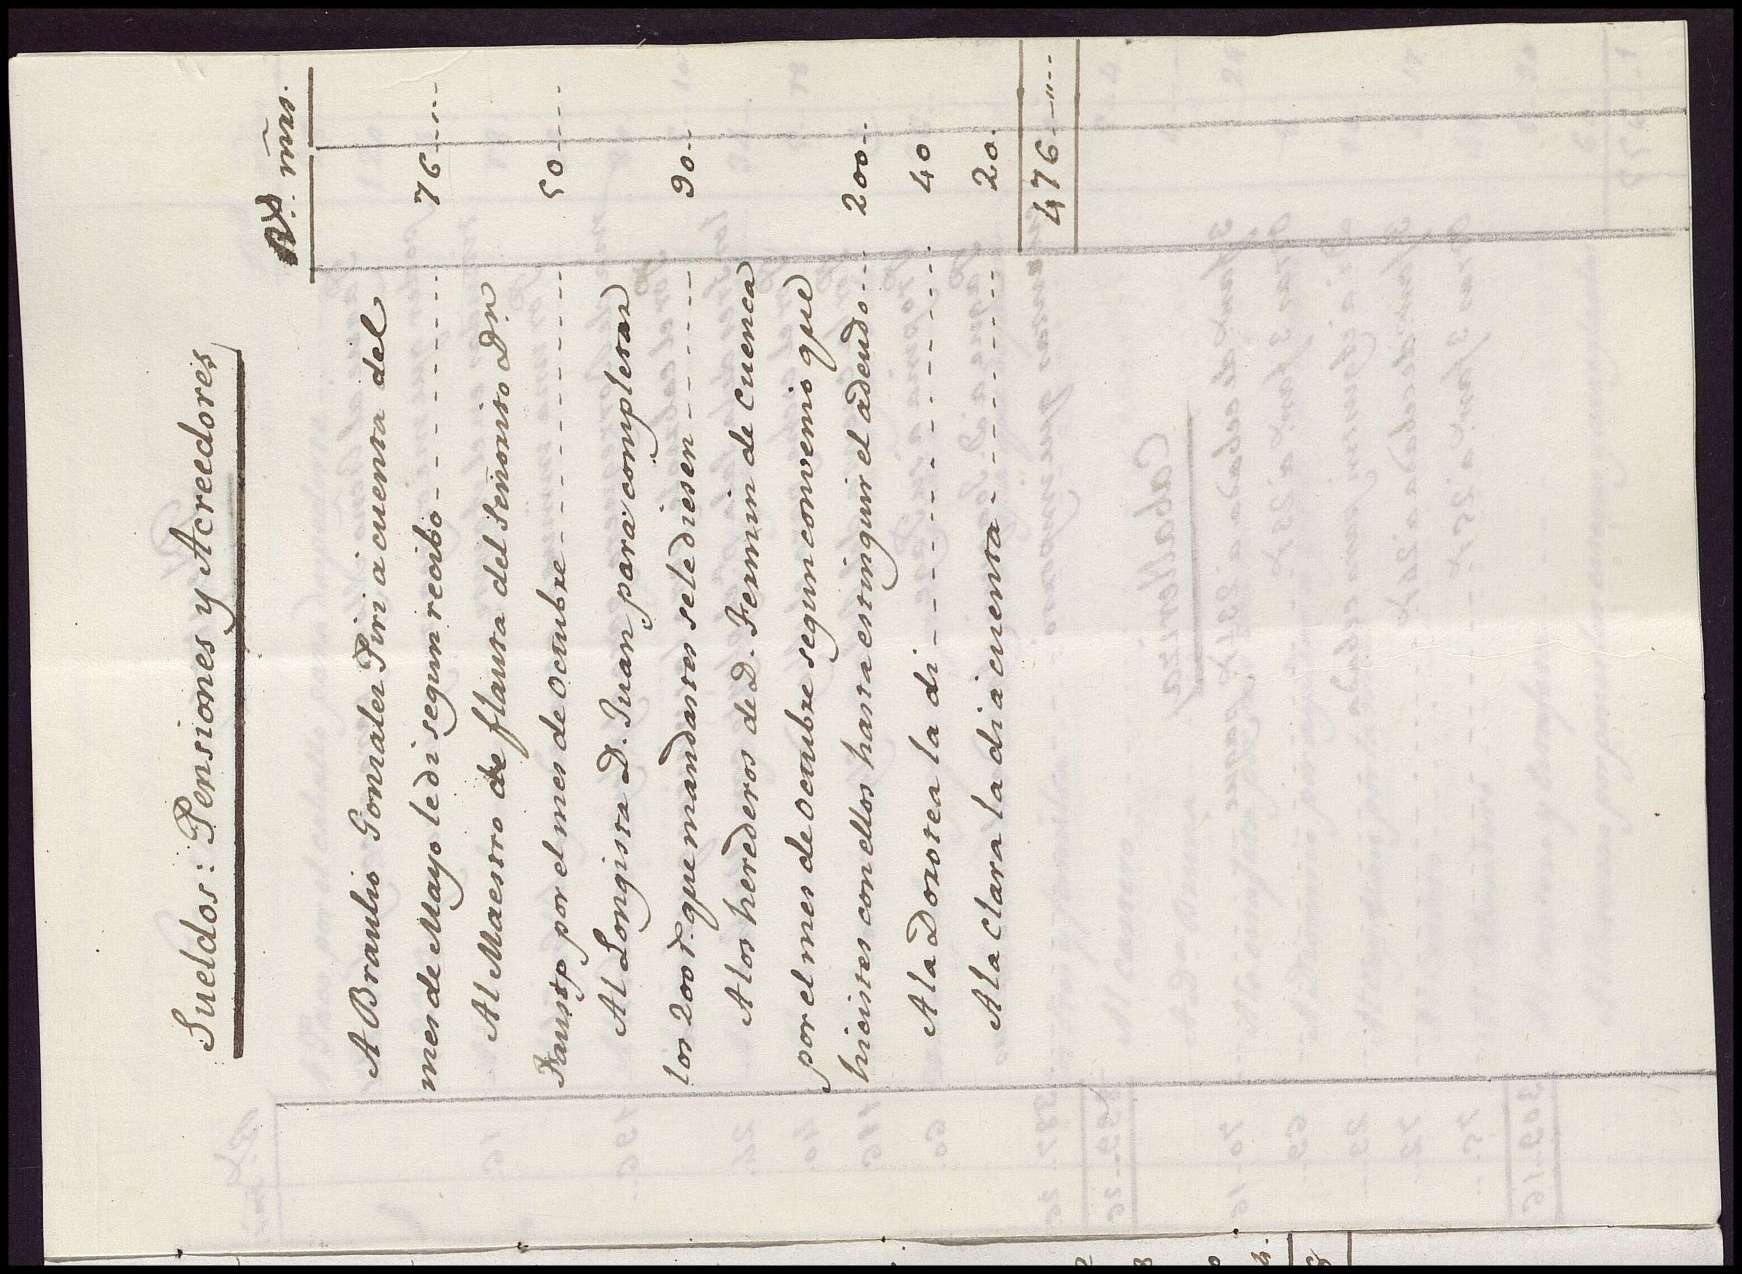 Sueldos: Pensiones y Acreedores
Rs. mrs.
A Braulio Gonzalez Piri a cuenta del
mes de Mayo le di segun recibo - - - - - - - - - - 76 - - -
Al Maestro de flauta del Señorito Dn.
Fausto por el mes de Octubre - - - - - - - - - - 50 - - -
Al Longista D. Juan para completar
los 200 r. que mandastes se le diesen - - - - - - 90 - -
A los herederos de D. Fermin de Cuenca
por el mes de Octubre segun convenio que
hicistes con ellos hasta estinguir el adeudo - - - 200 - -
A la Dorotea la di - - - - - - - - - - - 40
A la Clara la di a cuenta - - - - - - - - 20
476 - " - -